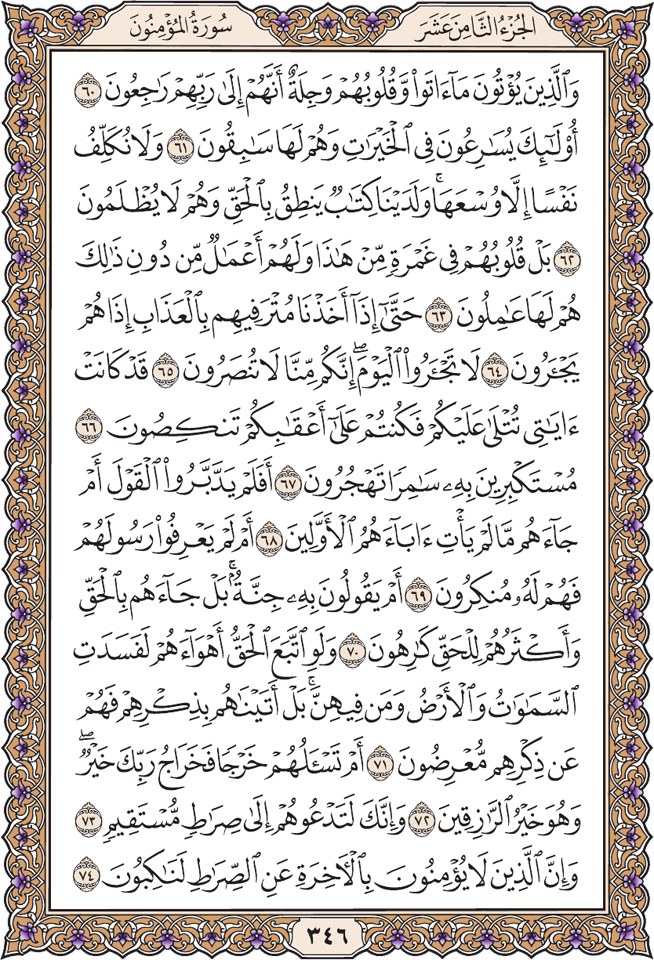 الجزء الثامن عشر
سورة المؤمنون
وَٱلَّذِينَ يُؤْتُونَ مَآ ءَاتَوا۟ وَّقُلُوبُهُمْ وَجِلَةٌ أَنَّهُمْ إِلَىٰ رَبِّهِمْ رَٰجِعُونَ ٦٠
أُو۟لَـٰٓئِكَ يُسَـٰرِعُونَ فِى ٱلْخَيْرَٰتِ وَهُمْ لَهَا سَـٰبِقُونَ ٦١ وَلَا نُكَلِّفُ
نَفْسًا إِلَّا وُسْعَهَا ۚ وَلَدَيْنَا كِتَـٰبٌ يَنطِقُ بِٱلْحَقِّ وَهُمْ لَا يُظْلَمُونَ
٦٢ بَلْ قُلُوبُهُمْ فِى غَمْرَةٍ مِّنْ هَـٰذَا وَلَهُمْ أَعْمَـٰلٌ مِّن دُونِ ذَٰلِكَ
هُمْ لَهَا عَـٰمِلُونَ ٦٣ حَتَّىٰٓ إِذَآ أَخَذْنَا مُتْرَفِيهِم بِٱلْعَذَابِ إِذَا هُمْ
يَجْـَٔرُونَ ٦٤ لَا تَجْـَٔرُوا۟ ٱلْيَوْمَ ۖ إِنَّكُم مِّنَّا لَا تُنصَرُونَ ٦٥ قَدْ كَانَتْ
ءَايَـٰتِى تُتْلَىٰ عَلَيْكُمْ فَكُنتُمْ عَلَىٰٓ أَعْقَـٰبِكُمْ تَنكِصُونَ ٦٦
مُسْتَكْبِرِينَ بِهِۦ سَـٰمِرًا تَهْجُرُونَ ٦٧ أَفَلَمْ يَدَّبَّرُوا۟ ٱلْقَوْلَ أَمْ
جَآءَهُم مَّا لَمْ يَأْتِ ءَابَآءَهُمُ ٱلْأَوَّلِينَ ٦٨ أَمْ لَمْ يَعْرِفُوا۟ رَسُولَهُمْ
فَهُمْ لَهُۥ مُنكِرُونَ ٦٩ أَمْ يَقُولُونَ بِهِۦ جِنَّةٌۢ ۚ بَلْ جَآءَهُم بِٱلْحَقِّ
وَأَكْثَرُهُمْ لِلْحَقِّ كَـٰرِهُونَ ٧٠ وَلَوِ ٱتَّبَعَ ٱلْحَقُّ أَهْوَآءَهُمْ لَفَسَدَتِ
ٱلسَّمَـٰوَٰتُ وَٱلْأَرْضُ وَمَن فِيهِنَّ ۚ بَلْ أَتَيْنَـٰهُم بِذِكْرِهِمْ فَهُمْ
عَن ذِكْرِهِم مُّعْرِضُونَ ٧١ أَمْ تَسْـَٔلُهُمْ خَرْجًا فَخَرَاجُ رَبِّكَ خَيْرٌ ۖ
وَهُوَ خَيْرُ ٱلرَّٰزِقِينَ ٧٢ وَإِنَّكَ لَتَدْعُوهُمْ إِلَىٰ صِرَٰطٍ مُّسْتَقِيمٍ ٧٣
وَإِنَّ ٱلَّذِينَ لَا يُؤْمِنُونَ بِٱلْـَٔاخِرَةِ عَنِ ٱلصِّرَٰطِ لَنَـٰكِبُونَ ٧٤
٣٤٦